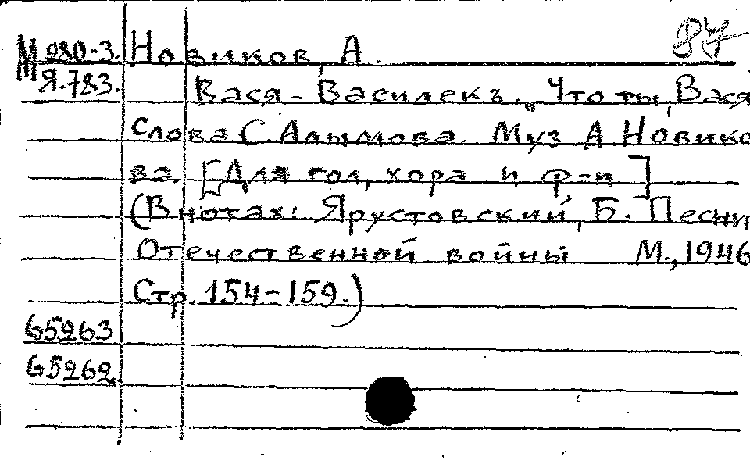 М 980-3. Новиков, А. 87
Я.783. Вася-Василекъ. „Что ты, Вася
Слова С Алымова. Муз А Новико
ва. [Для гол, хора и ф-п]
(В нотах: Ярустовский, Б. Песни
Отечественной войны М., 1946
Стр. 154-159.)
65263
65262